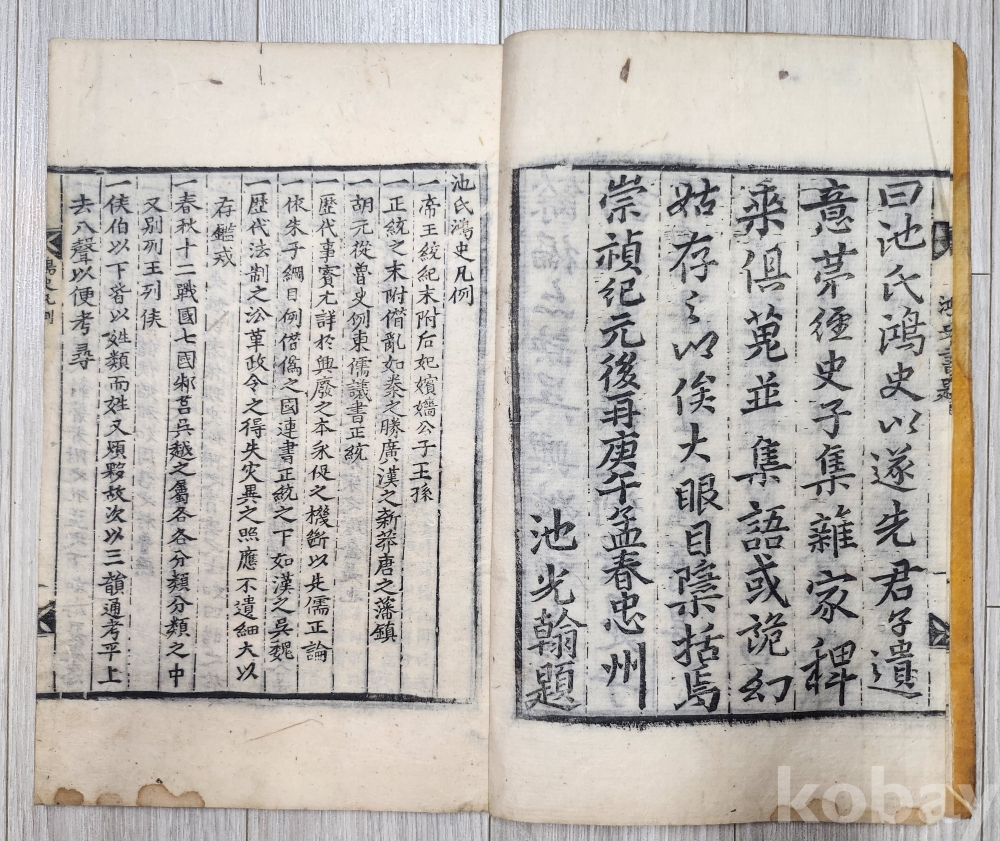 曰池氏鴻史以遂先君子遺
意夢經史子集雜家稗
乘俱蒐並集語或詭幻
姑存之以俟大眼目隱括焉
崇禎紀元後再庚午孟春忠州
池光翰題
池氏鴻史凡例
一帝王統紀末附后妃嬪嬙公子王孫
一正統之末附僭亂如秦之勝廣漢之新莽唐之藩鎮
一胡元從曾史例東儒議書正統
一歷代事實尤詳於興廢之本永促之機斷以先儒正論
一依朱子綱目例僭僞之國連書正統之下如漢之吳魏
一歷代法制之沿革政令之得失灾異之照應不遺細大以
存鑑戒
一春秋十二戰國七國邾莒吳越之屬各各分類分類之中
又別列王列侯
一侯伯以下皆以姓類而姓又煩夥故次以三韻通考平上
去入聲以便考尋
鴻史凡例
kobay